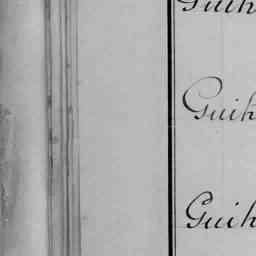 Guih
Guih
Guih